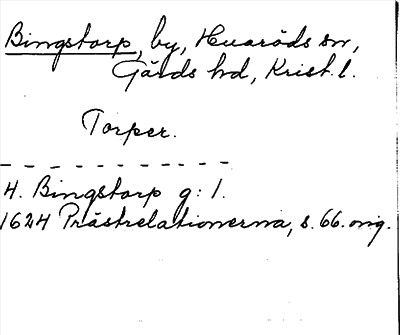 Bingstorp, by, Huaröds sn,
Gärds hd, Krist. l.
Torper.
4. Bingstorp g: 1.
1624 Prästrelationerna, s. 66. orig.